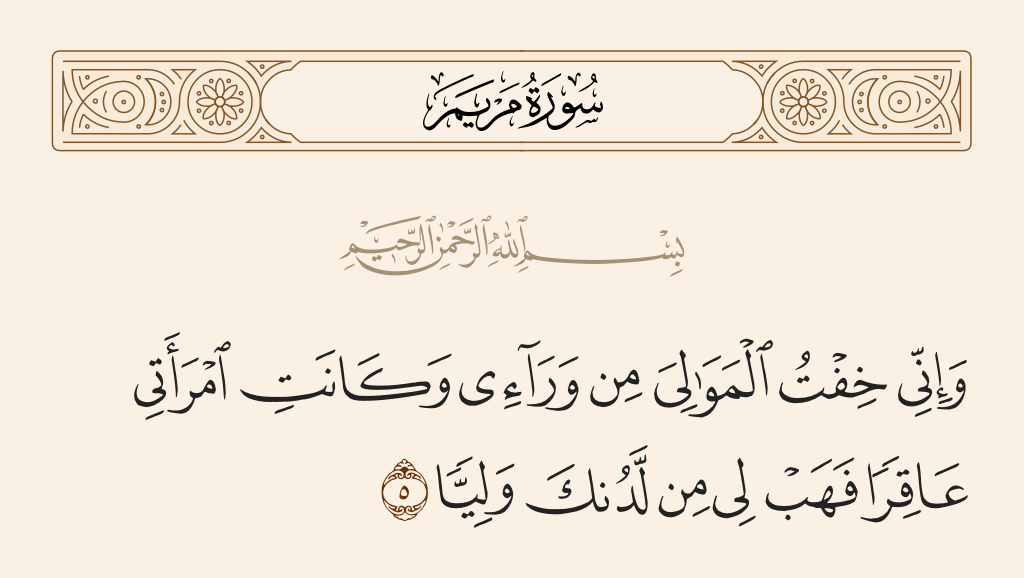 سُورَةُ مَرْيَمَ
بِسْمِ ٱللَّهِ ٱلرَّحْمَٰنِ ٱلرَّحِيمِ
وَإِنِّى خِفْتُ ٱلْمَوَٰلِىَ مِن وَرَآءِى وَكَانَتِ ٱمْرَأَتِى
عَاقِرًا فَهَبْ لِى مِن لَّدُنكَ وَلِيًّا ٥